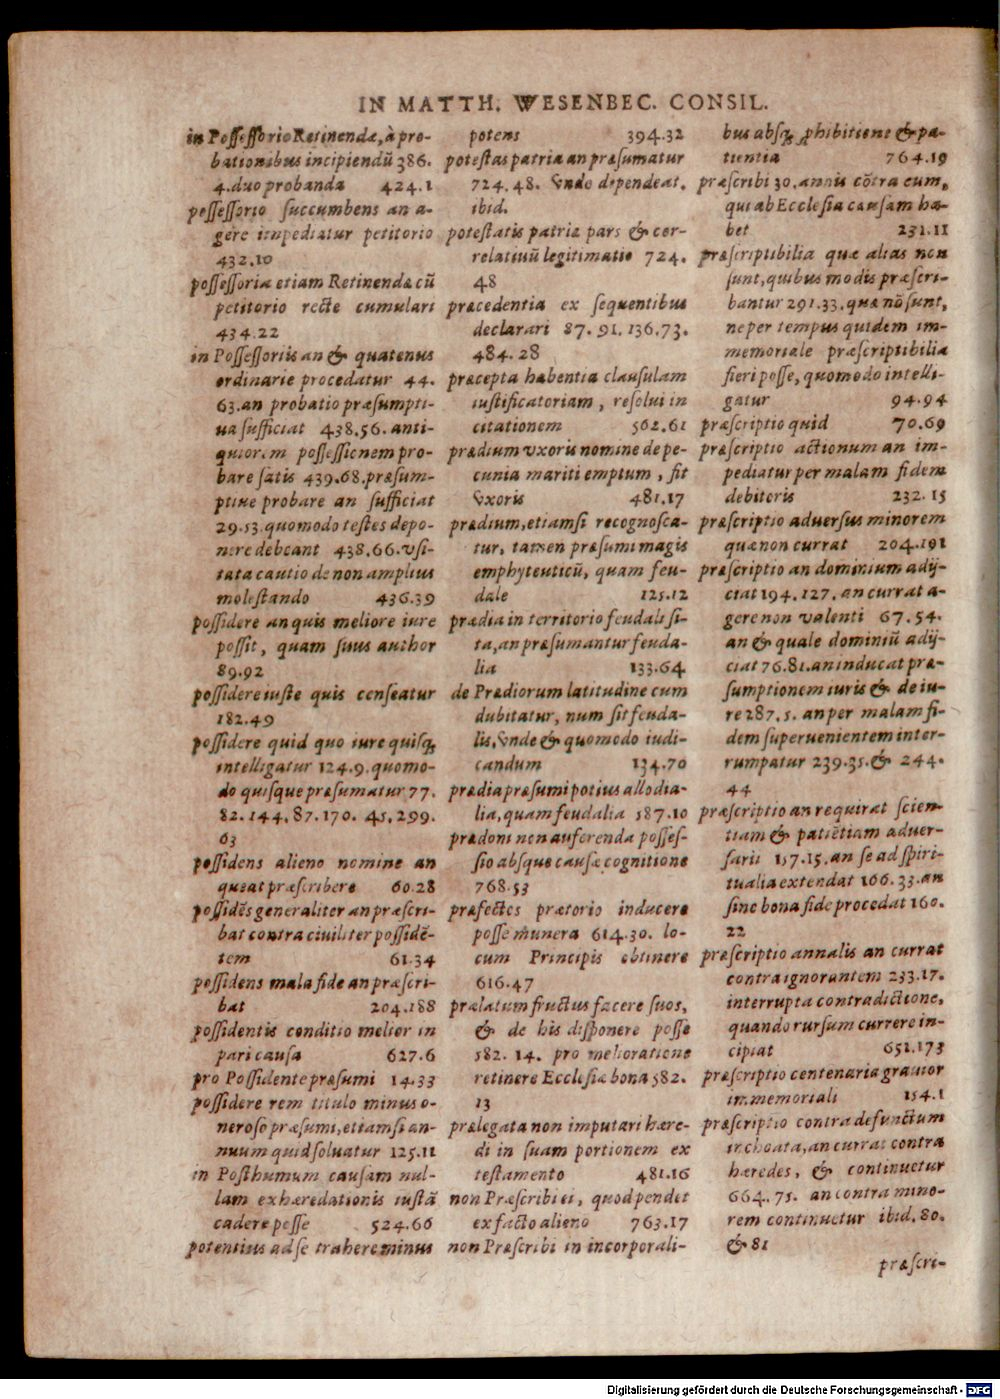 IN MATTH. WESENBEC. CONSIL.
in Possessorio Retinendæ, à pro-
bationibus incipiendũ 386.
4. duo probanda 424.1
possessorio succumbens an a-
gere impediatur petitorio
432.10
possessoria etiam Retinendæ cũ
petitorio recte cumulari
434.22
in Possessoriis an & quatenus
ordinarie procedatur 44.
63. an probatio præsumpti-
ua sufficiat 438.56. anti-
quiorem possessionem pro-
bare satis 439.68. præsum-
ptiue probare an sufficiat
29.53. quomodo testes depo-
nere debeant 438.66. vsi-
tata cautio de non amplius
molestando 436.39
possidere an quis meliore iure
possit, quam suus author
89.92
possidere iuste quis censeatur
182.49
possidere quid quo iure quisq;
intelligatur 124.9. quomo-
do quisque præsumatur 77.
82. 144. 87. 170. 45. 299.
63
possidens alieno nomine an
queat præscribere 60.28
possidẽs generaliter an præscri-
bat contra ciuiliter possidẽ-
tem 61.34
possidens mala fide an præscri-
bat 204.188
possidentis conditio melior in
pari causa 627.6
pro Possidente præsumi 14.33
possidere rem titulo minus o-
neroso præsumi, etiamsi an-
nuum quid soluatur 125.11
in Posthumum causam nul-
lam exhæredationis iustã
cadere posse 524.66
potentius ad se trahere minus
potens 394.32
potestas patria an præsumatur
724.48. Vnde dependeat.
ibid.
potestatis patriæ pars & cor-
relatiuũ legitimatio 724.
48
præcedentia ex sequentibus
declarari 87. 91. 136. 73.
484. 28
præcepta habentia clausulam
iustificatoriam, resolui in
citationem 562.61
prædium vxoris nomine de pe-
cunia mariti emptum, fit
Vxoris 481.17
prædium, etiamsi recognosca-
tur, tamen præsumi magis
emphyteuticũ, quam feu-
dale 125.12
prædia in territorio feudali si-
ta, an præsumantur feuda-
lia 133.64
de Prædiorum latitudine cum
dubitatur, num sit feuda-
lis, Vnde & quomodo iudi-
candum 134.70
prædia præsumi potius allodia-
lia, quam feudalia 587.10
prædoni non auferenda posses-
sio absque causæ cognitione
768.53
præfectos prætorio inducere
posse munera 614.30. lo-
cum Principis obtinere
616.47
prælatum fructus facere suos,
& de his disponere posse
582. 14. pro melioratione
retinere Ecclesiæ bona 582.
13
prælegata non imputari hære-
di in suam portionem ex
testamento 481.16
non Præscribi ei, quod pendet
ex facto alieno 763.17
non Præscribi in incorporali-
bus absq; phibitione & pa-
tientia 764.19
præscribi 30. annis cõtra eum,
qui ab Ecclesia causam ha-
bet 231.11
præscriptibilia quæ alias non
sunt, quibus modis præscri-
bantur 291.33. quæ nõ sunt,
ne per tempus quidem im-
memoriale præscriptibilia
fieri posse, quomodo intelli-
gatur 94.94
præscriptio quid 70.69
præscriptio actionum an im-
pediatur per malam fidem
debitoris 232.15
præscriptio aduersus minorem
quæ non currat 204.191
præscriptio an dominium adij-
ciat 194.127. an currat a-
gere non valenti 67.54.
an & quale dominiũ adij-
ciat 76.81. an inducat præ-
sumptionem iuris & de iu-
re 287.5. an per malam fi-
dem superuenientem inter-
rumpatur 239.35. & 244.
44
præscriptio an requirat scien-
tiam & patiẽtiam aduer-
sarii 157.15. an se ad spiri-
tualia extendat 166.33. an
sine bona fide procedat 160.
22
præscriptio annalis an currat
contra ignorantem 233.17.
interrupta contradictione,
quando rursum currere in-
cipiat 651.173
præscriptio centenaria grauior
immemoriali 154.1
præscriptio contra defunctum
inchoata, an currat contra
hæredes, & continuetur
664. 75. an contra mino-
rem continuetur ibid. 80.
& 81
præscri-
Digitalisierung gefördert durch die Deutsche Forschungsgemeinschaft - DFG